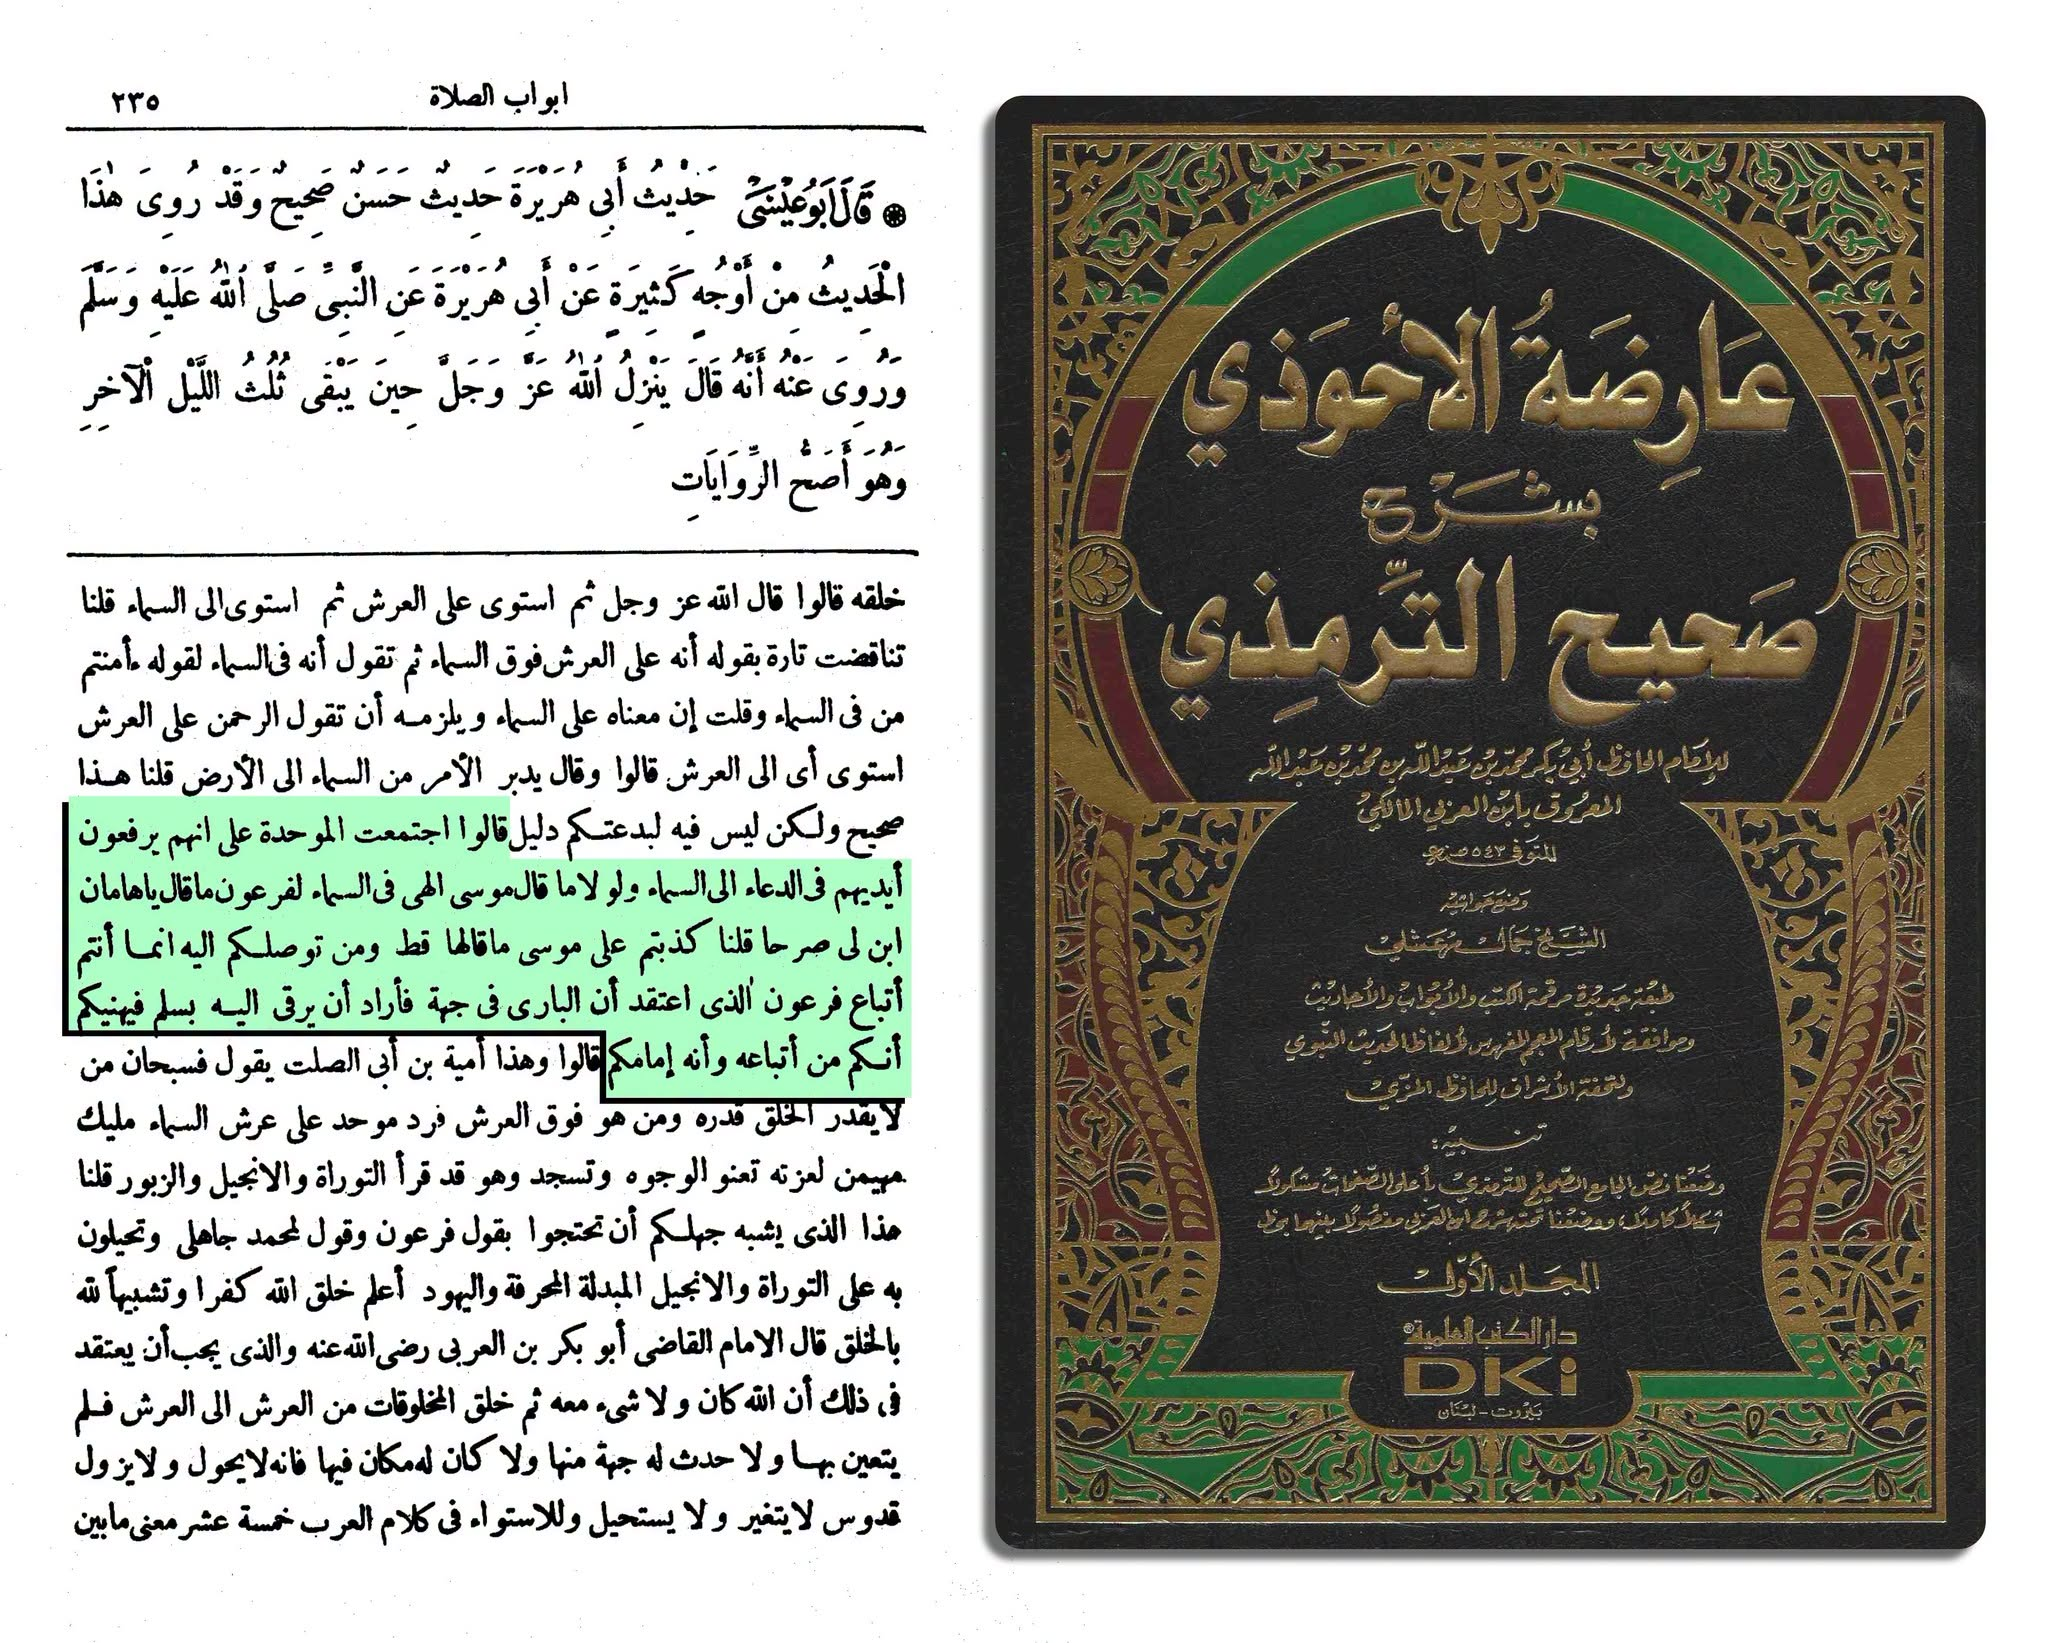 ابواب الصلاة ٢٣٥
قَالَ أَبُو عِيسَى حَدِيثُ أَبِي هُرَيْرَةَ حَدِيثٌ حَسَنٌ صَحِيحٌ وَقَدْ رُوِىَ هٰذَا
الْحَدِيثُ مِنْ أَوْجُهٍ كَثِيرَةٍ عَنْ أَبِي هُرَيْرَةَ عَنِ النَّبِىِّ صَلَّى اللهُ عَلَيْهِ وَسَلَّمَ
وَرُوِىَ عَنْهُ أَنَّهُ قَالَ يَنْزِلُ اللهُ عَزَّ وَجَلَّ حِينَ يَبْقَى ثُلُثُ اللَّيْلِ الْآخِرِ
وَهُوَ أَصَحُّ الرِّوَايَاتِ
خلقه قالوا قال الله عز وجل ثم استوى على العرش ثم استوى الى السماء قلنا
تناقضت تارة بقوله أنه على العرش فوق السماء ثم تقول أنه فى السماء لقوله ءأمنتم
من فى السماء وقلت إن معناه على السماء ويلزمه أن تقول الرحمن على العرش
استوى أى الى العرش قالوا وقال يدبر الأمر من السماء الى الأرض قلنا هذا
صحيح ولكن ليس فيه لبدعتكم دليل قالوا اجتمعت الموحدة على انهم يرفعون
أيديهم فى الدعاء الى السماء ولولا ما قال موسى الهى فى السماء لفرعون ما قال ياهامان
ابن لى صرحا قلنا كذبتم على موسى ما قالها قط ومن توصلكم اليه انما أنتم
أتباع فرعون الذى اعتقد أن البارى فى جهة فأراد أن يرقى اليه بسلم فيهنيكم
أنكم من أتباعه وأنه إمامكم قالوا وهذا أمية بن أبى الصلت يقول فسبحان من
لا يقدر الخلق قدره ومن هو فوق العرش فرد موحد على عرش السماء مليك
مهيمن لعزته تعنو الوجوه وتسجد وهو قد قرأ التوراة والانجيل والزبور قلنا
هذا الذى يشبه جهلكم أن تحتجوا بقول فرعون وقول لمحمد جاهلى وتحيلون
به على التوراة والانجيل المبدلة المحرفة واليهود أعلم خلق الله كفرا وتشبيها لله
بالخلق قال الامام القاضى أبو بكر بن العربى رضى الله عنه والذى يجب أن يعتقد
فى ذلك أن الله كان ولا شىء معه ثم خلق المخلوقات من العرش الى العرش فلم
يتعين بها ولا حدث له جهة منها ولا كان له مكان فيها فانه لا يحول ولا يزول
قدوس لا يتغير ولا يستحيل وللاستواء فى كلام العرب خمسة عشر معنى ما بين
عَارِضَةُ الأَحْوَذي
بشَرْح
صَحيح التِّرمِذي
للإمَام الحافظ أبي بكر محمّد بْن عَبْد اللّه بن محمّد بْن عَبْد اللّه
المعرُوف بابن العربي المالكي
المتوفى ٥٤٣ هـ
وَضَع حَواشيه
الشيخ جمال مرعشلي
طبعة جديدة مرقمة الكتب والأبواب والأحاديث
وموافقة لأرقام المعجم المفهرس لألفاظ الحديث النبوي
ولتحفة الأشراف للحافظ المزّي
تنبيه:
وضعنا نص الجامع الصحيح للترمذي بأعلى الصفحات مشكولاً
شكلاً كاملاً، ووضعنا تحته شرح ابن العربي مفصولاً بينهما بخط
المجَلد الأوّل
دار الكتب العلمية
DKi
بَيْرُوت - لبْنَان